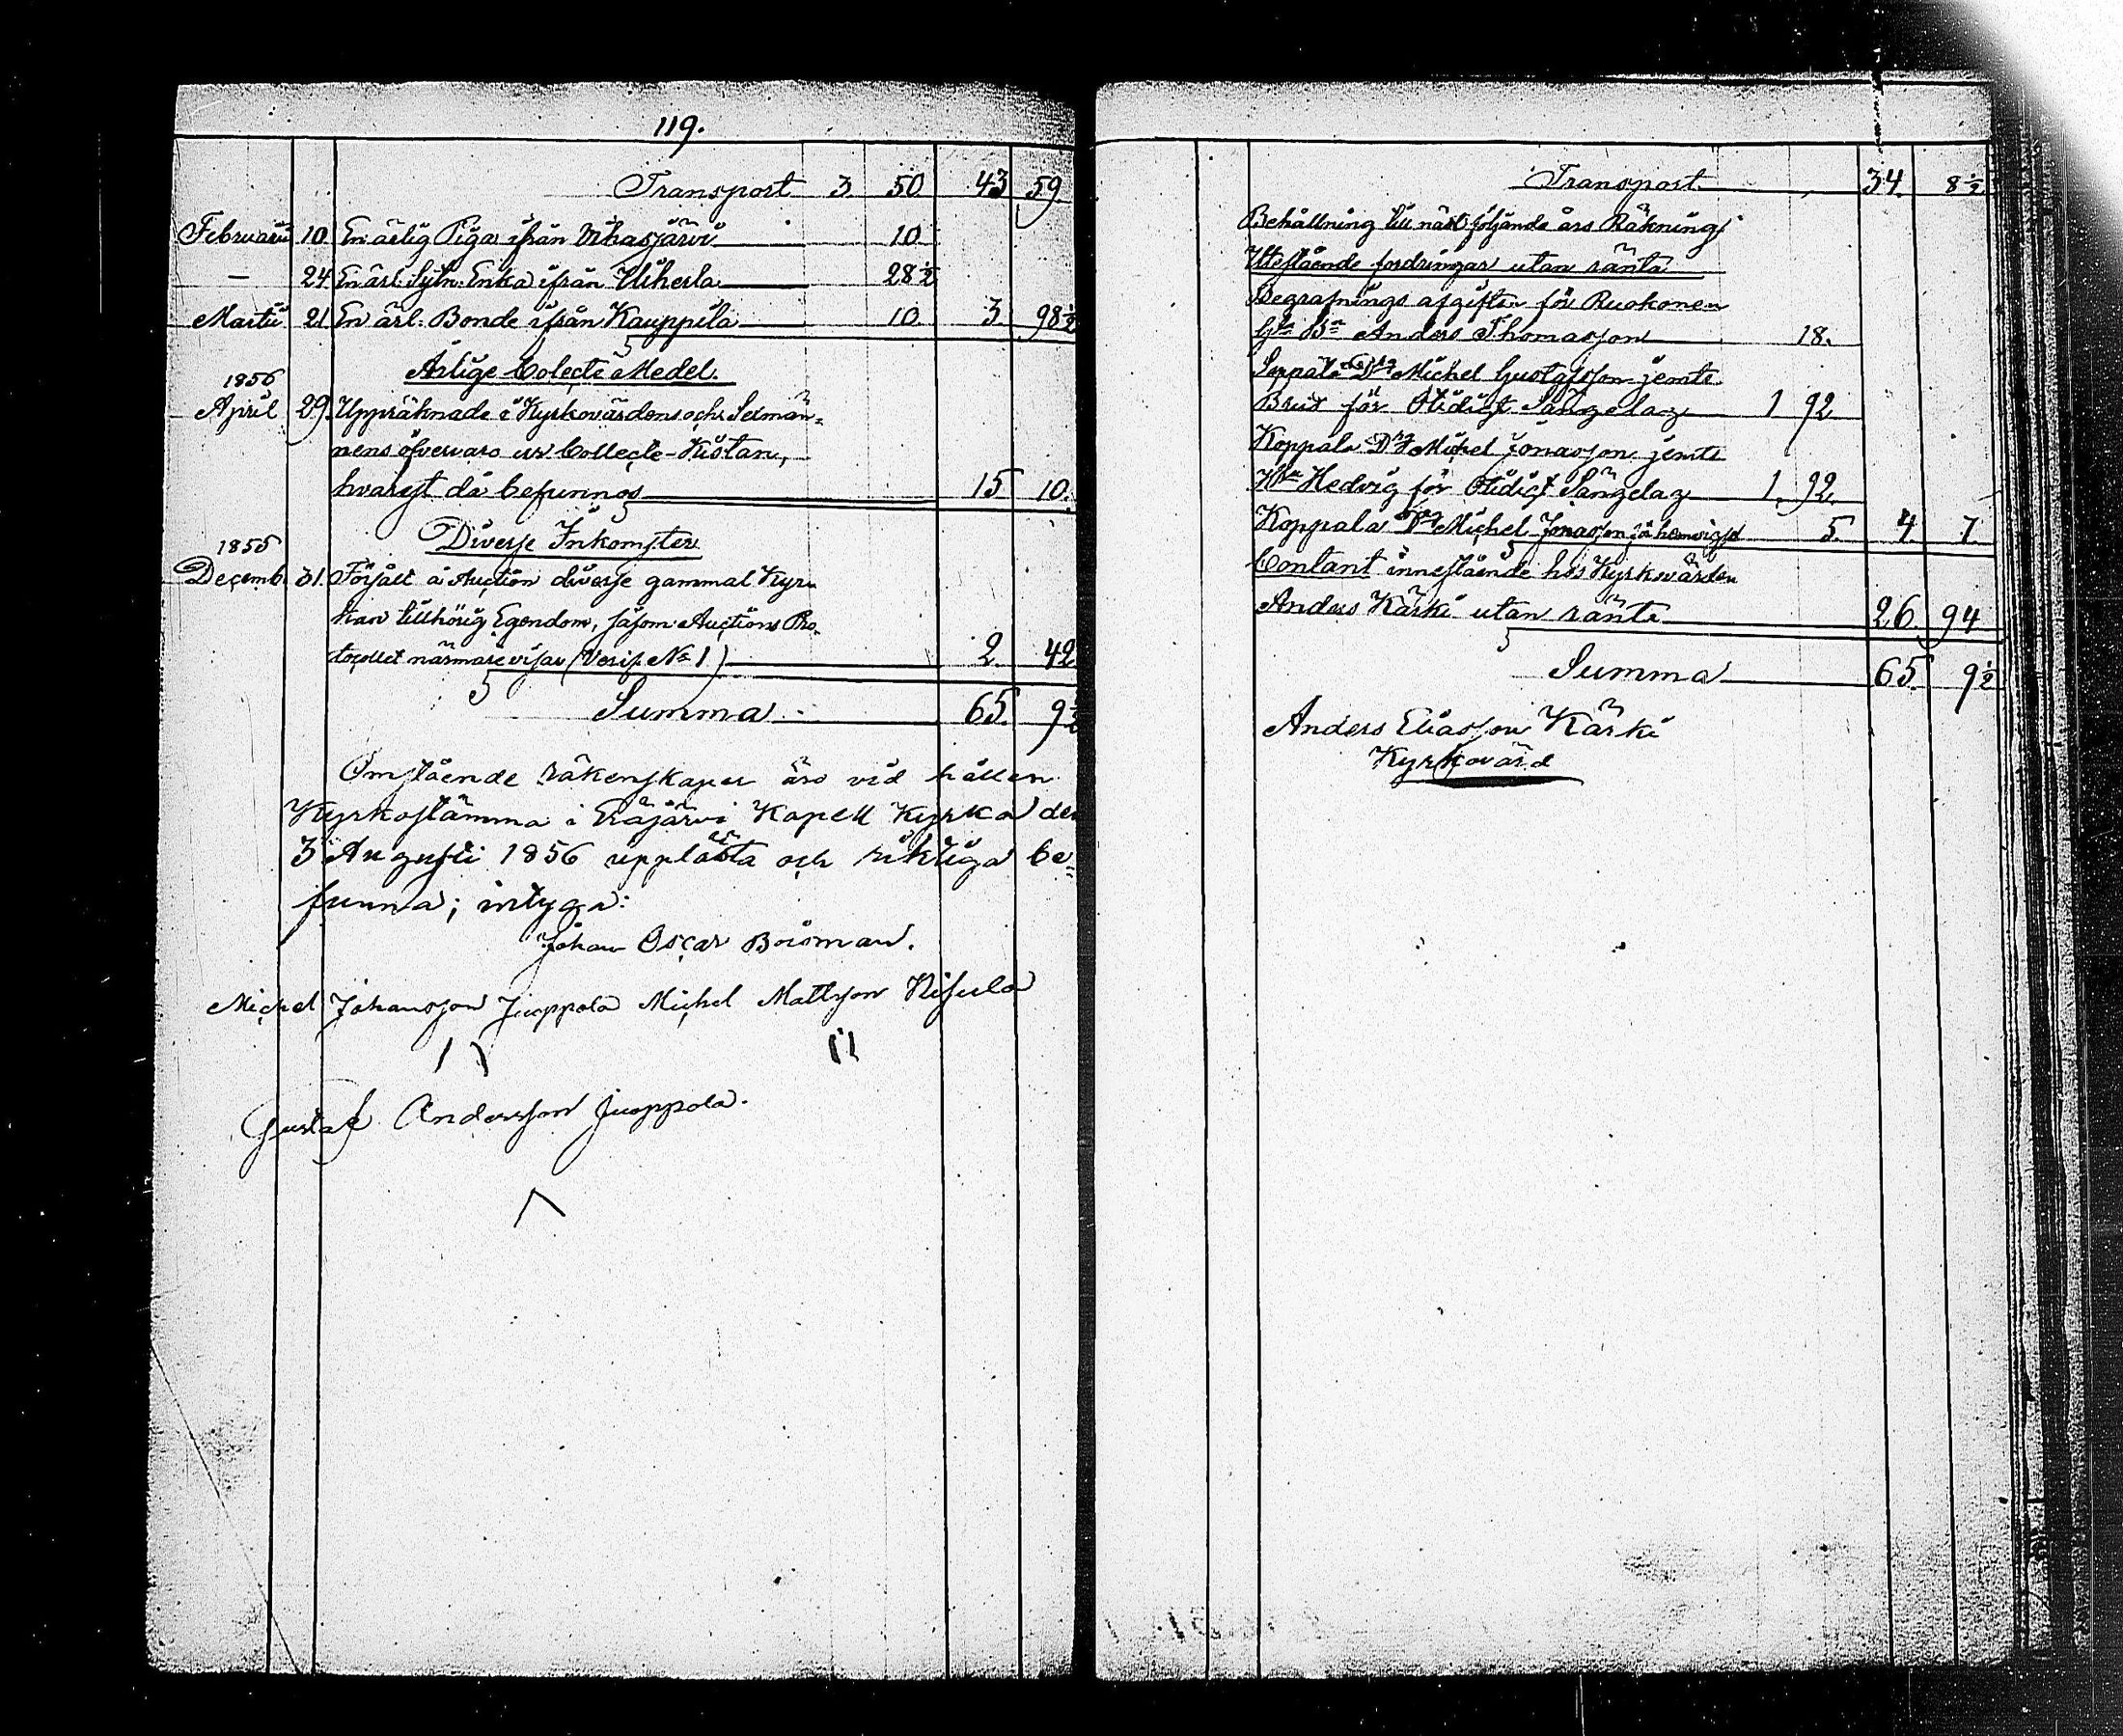 119.
Transport 3. 50 43 59.
Februarii 10 En ärlig Piga ifrån Vihasjärvi 10
— 24 En ärl. Sytn. Enka ifrån Uiherla 28½
Martii 21 En ärl. Bonde ifrån Kauppila 10 3 98½
Ärlige Colecte Medel.
1856
April 29. Uppräknade i Kyrkovärdens och Sexmän=
nens öfvervaro ur Collecte-Kistan,
hvarest då befunnos 15 10.
Diverse Inkomster
1855
Decemb. 31. Försålt å Auction diverse gammal Kyr-
kan tillhörig Egendom, såsom Auctions Pro-
tocollet närmare visar (Verif. No 1) 2. 42
Summa 65 9½
Omstående räkenskaper äro vid hållen
Kyrkostämma i Eräjärvi Kapell Kyrka den
3 Augusti 1856 upplästa och riktiga be=
funna; intyga:
Johan Oscar Boisman.
Michel Johansson Juoppola Michel Mattsson Nisula
Gustaf Andersson Juoppola.
Transport 34. 8½
Behållning till näst följande års Räkning
Utestående fordringar utan ränta
Begrafnings afgiften för Ruokonen
Anders Thomasson 18.
Seppälä Michel Gustafsson jemte
Brud för Otidigt Sängelag 1 92
Koppala Michel Jonasson jemte
Hedvig för Otidigt Sängelag 1. 92.
Koppala Michel Jonasson 5. 4 7.
Contant innestående hos Kyrkovärden
Anders Kärki utan ränta 26. 94
Summa 65. 9½
Anders Eliasson Kärki
Kyrkovärd